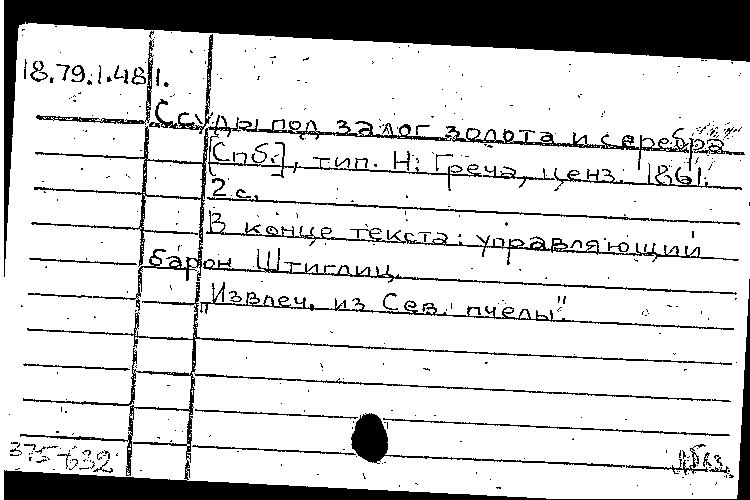 18.79.1.481.
Ссуды под залог золота и серебра
[Спб.], тип. Н. Греча, ценз. 1861.
2 с.
В конце текста: управляющий
барон Штиглиц.
„Извлеч. из Сев. пчелы".
375-632